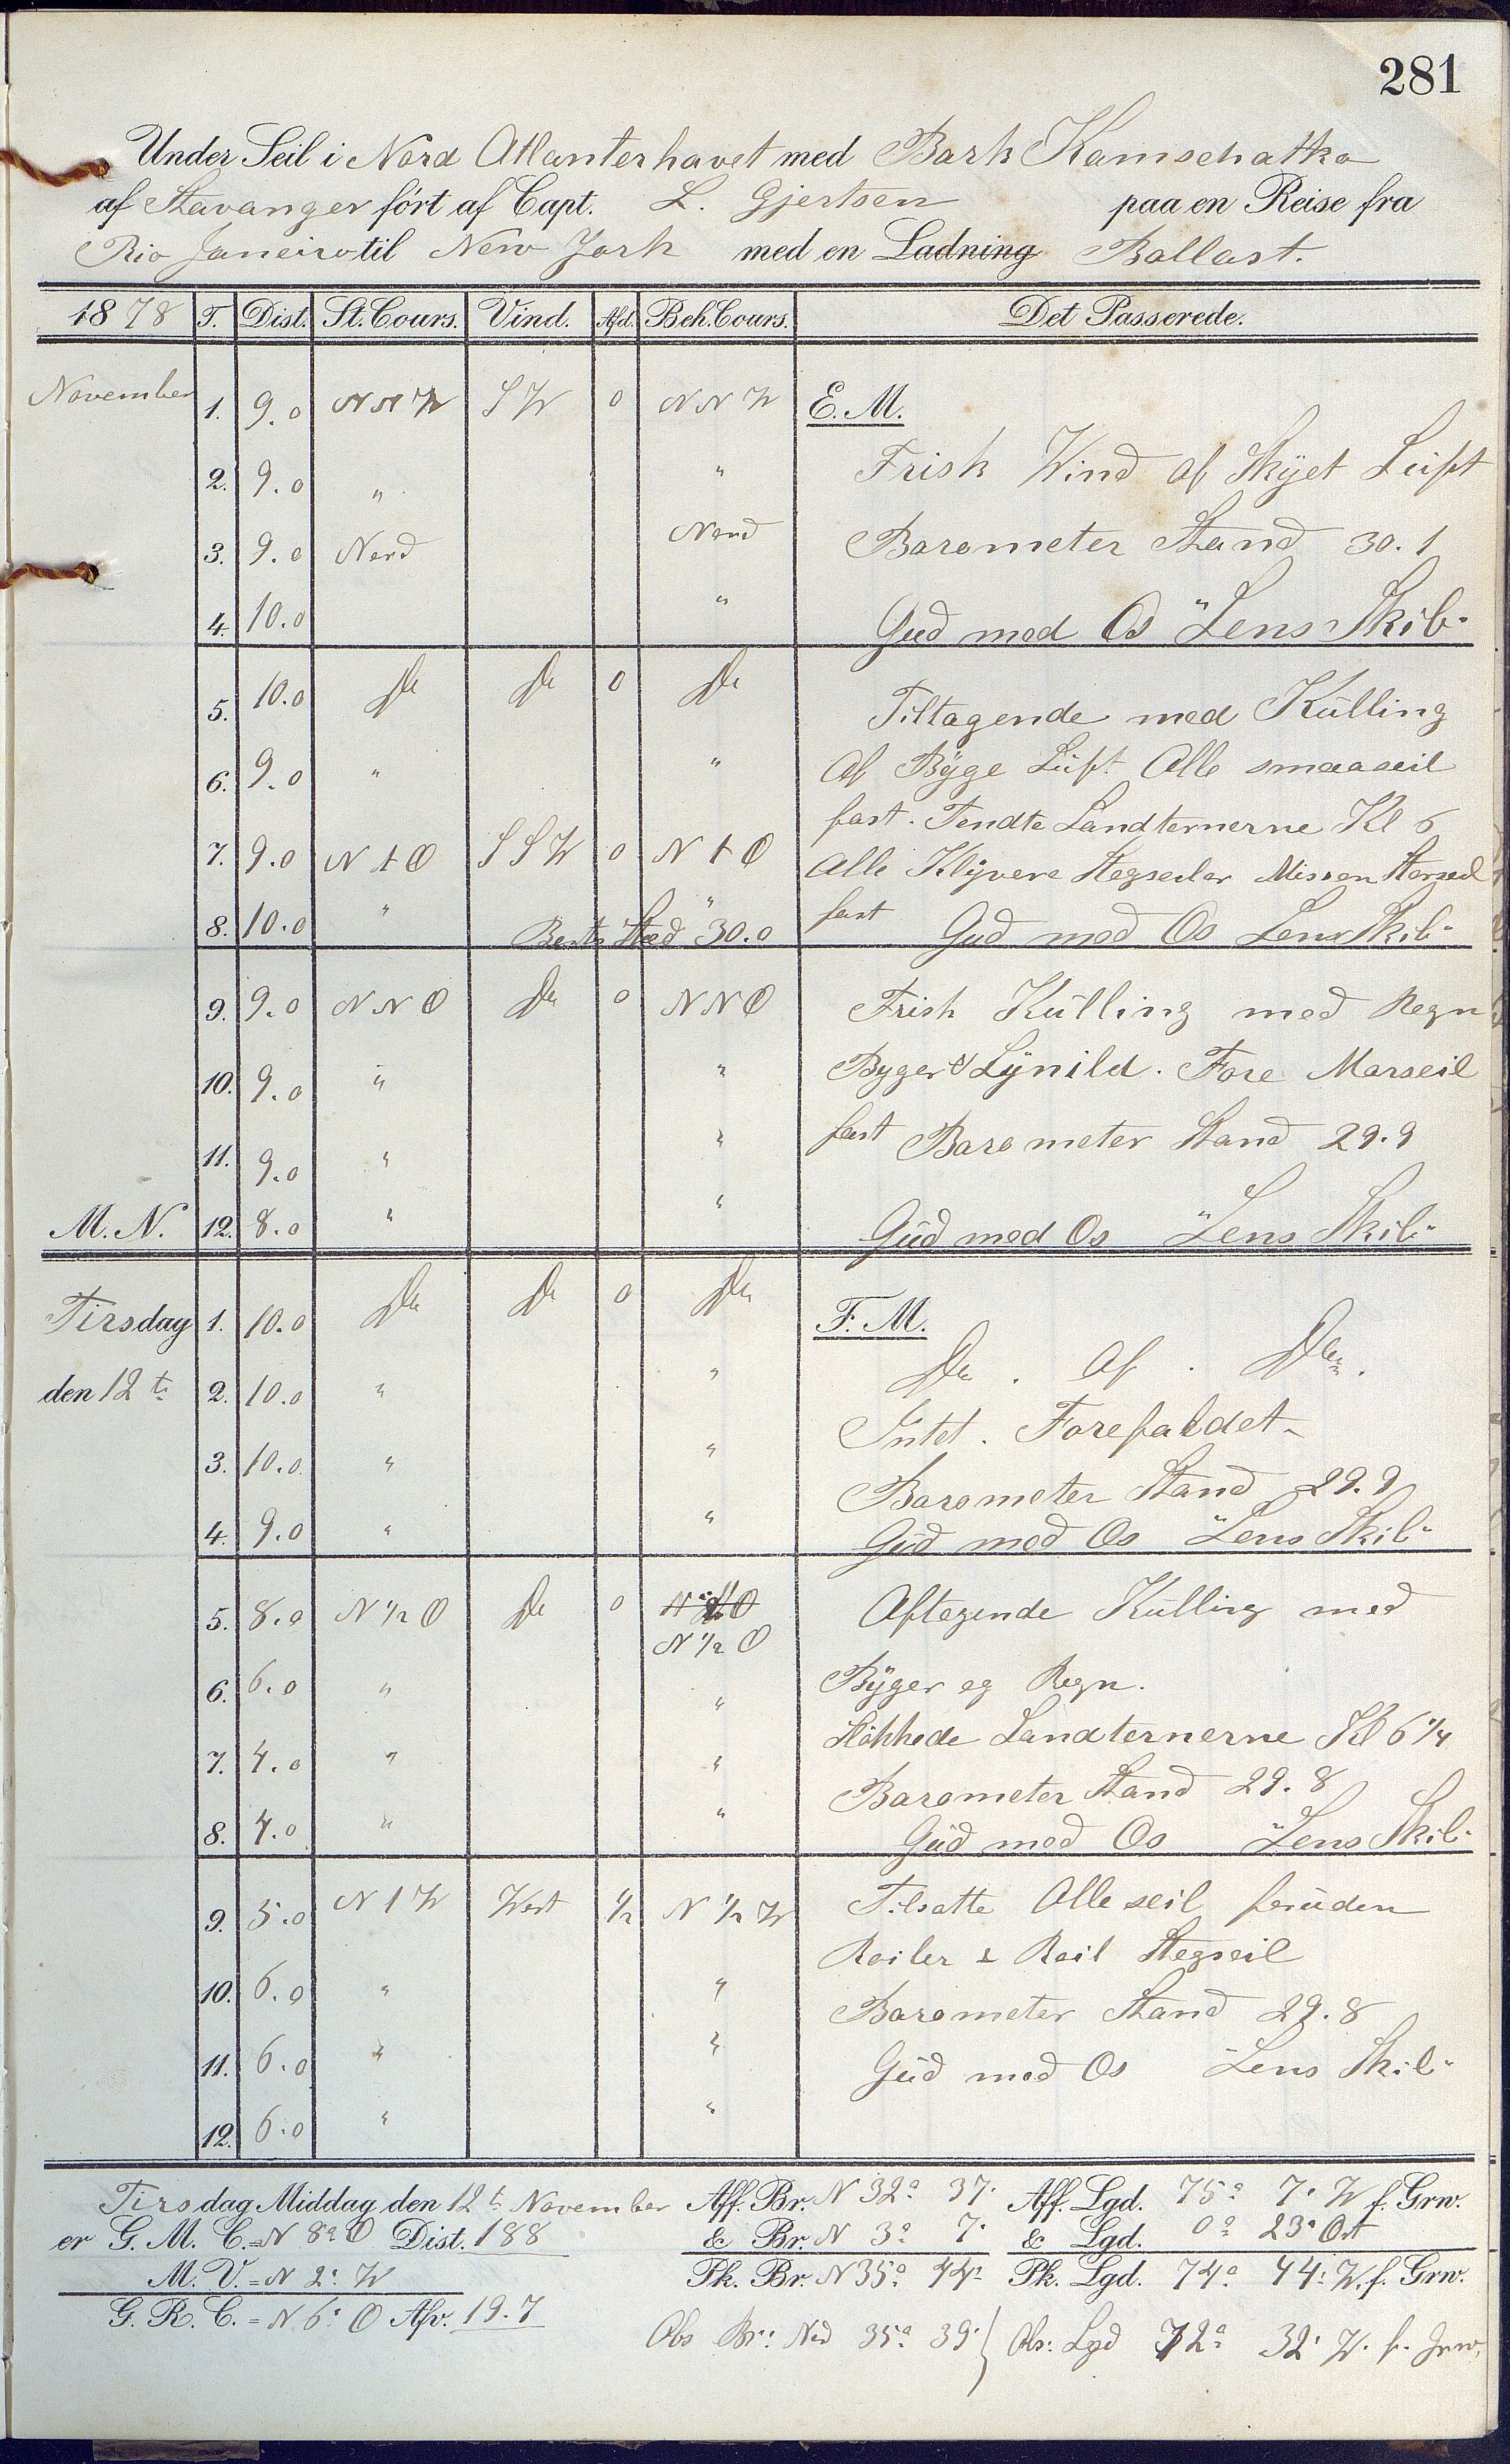 281
Under Seil i Nord Atlanterhavet med Bark Kamschatka
af Stavanger ført af Capt. L. Gjertsen paa en Reise fra
Rio Janeiro til New York med en Ladning Ballast.
1878 T. Dist. St. Cours. Vind. Afd. Beh. Cours. Det Passerede.
November 1. 9.0 NNW SW 0 NNW E. M.
2. 9.0 " " Frisk Wind af Skÿet Luft
3. 9.0 Nord Nord Barometer Stand 30.1
4. 10.0 " Gud med Os "Lens Skib"
5. 10.0 Do Do 0 Do Tiltagende med Kulling
6. 9.0 " " Af Bÿge Luft Alle smaaseil
fast. Tendte Landternerne Kl 6
7. 9.0 N 1 O SSW 0 N 1 O Alle Klÿvere Stegseiler Missan Storseil
8. 10.0 " " 30.0 fast Gud med Os Lens Skib"
9. 9.0 NNO Do 0 NNO Frisk Kulling med Regn
10. 9.0 " " Byger & Lÿnild. Fore Marseil
11. 9.0 " " fast Barometer Stand 29.9
M. N. 12. 8.0 " " Gud med Os "Lens Skib"
Tirsdag 1. 10.0 Do Do 0 Do F. M.
den 12te 2. 10.0 " " Do . Af . Do.
Intet. Forefaldet
3. 10.0 " " Barometer Stand 29.9
4. 9.0 " " Gud med Os "Lens Skib"
5. 8.0 N 1/2 O Do 0 N 1/2 O Aftagende Kulling med
6. 6.0 " " Bÿger og Regn.
Slökkede Landternerne Kl 6 1/4
7. 4.0 " " Barometer Stand 29.8
8. 4.0 " " Gud med Os "Lens Skib"
9. 5.0 N 1 W West 1/2 N 1/2 W Tilsatte Alle seil foruden
Roiler & Roil Stegseil
10. 6.0 " " Barometer Stand 29.8
11. 6.0 " " Gud med Os "Lens Skib"
12. 6.0 " "
Tirsdag Middag den 12te November Aff. Br. N 32° 37' Aff. Lgd. 75° 7' W f. Grw.
er G. M. C. = N 8° O Dist. 188 & Br. N 3° 7' & Lgd. 0° 23' Ost
M. V. = N 2° W Pk. Br. N 35° 44' Pk. Lgd. 74° 44' W. f. Grw.
G. R. C. = N 6° O Afv. 19.7
Obs Br: Nd 35° 39' } Obs: Lgd 72° 32' W. f. Grw.